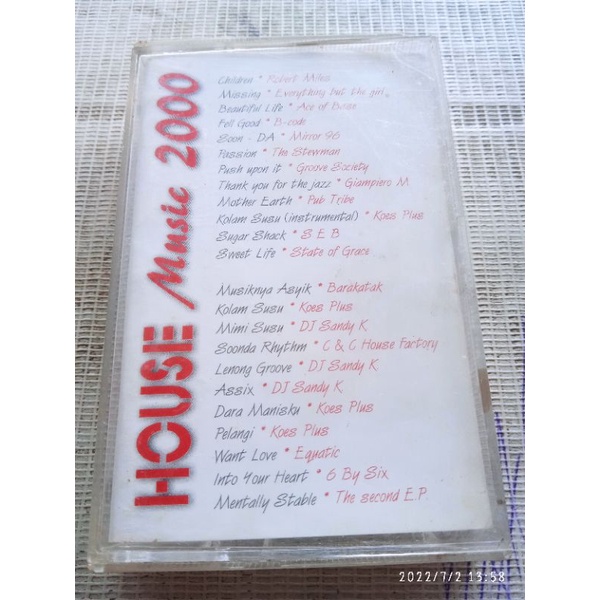 HOUSE Music 2000
Children * Robert Miles
Missing * Everything but the girl
Beautiful Life * Ace of Base
Fell Good * B-code
Soon - DA * Mirror 96
Passion * The Stewman
Push upon it * Groove Society
Thank you for the jazz * Giampiero M.
Mother Earth * Pub Tribe
Kolam Susu (instrumental) * Koes Plus
Sugar Shack * S E B
Sweet Life * State of Grace
Musiknya Asyik * Barakatak
Kolam Susu * Koes Plus
Mimi Susu * DJ Sandy K
Soonda Rhythm * C & C House Factory
Lenong Groove * DJ Sandy K
Assix * DJ Sandy K
Dara Manisku * Koes Plus
Pelangi * Koes Plus
Want Love * Eqyatic
Into Your Heart * 6 By Six
Mentally Stable * The second E.P.
2022/7/2 13:58